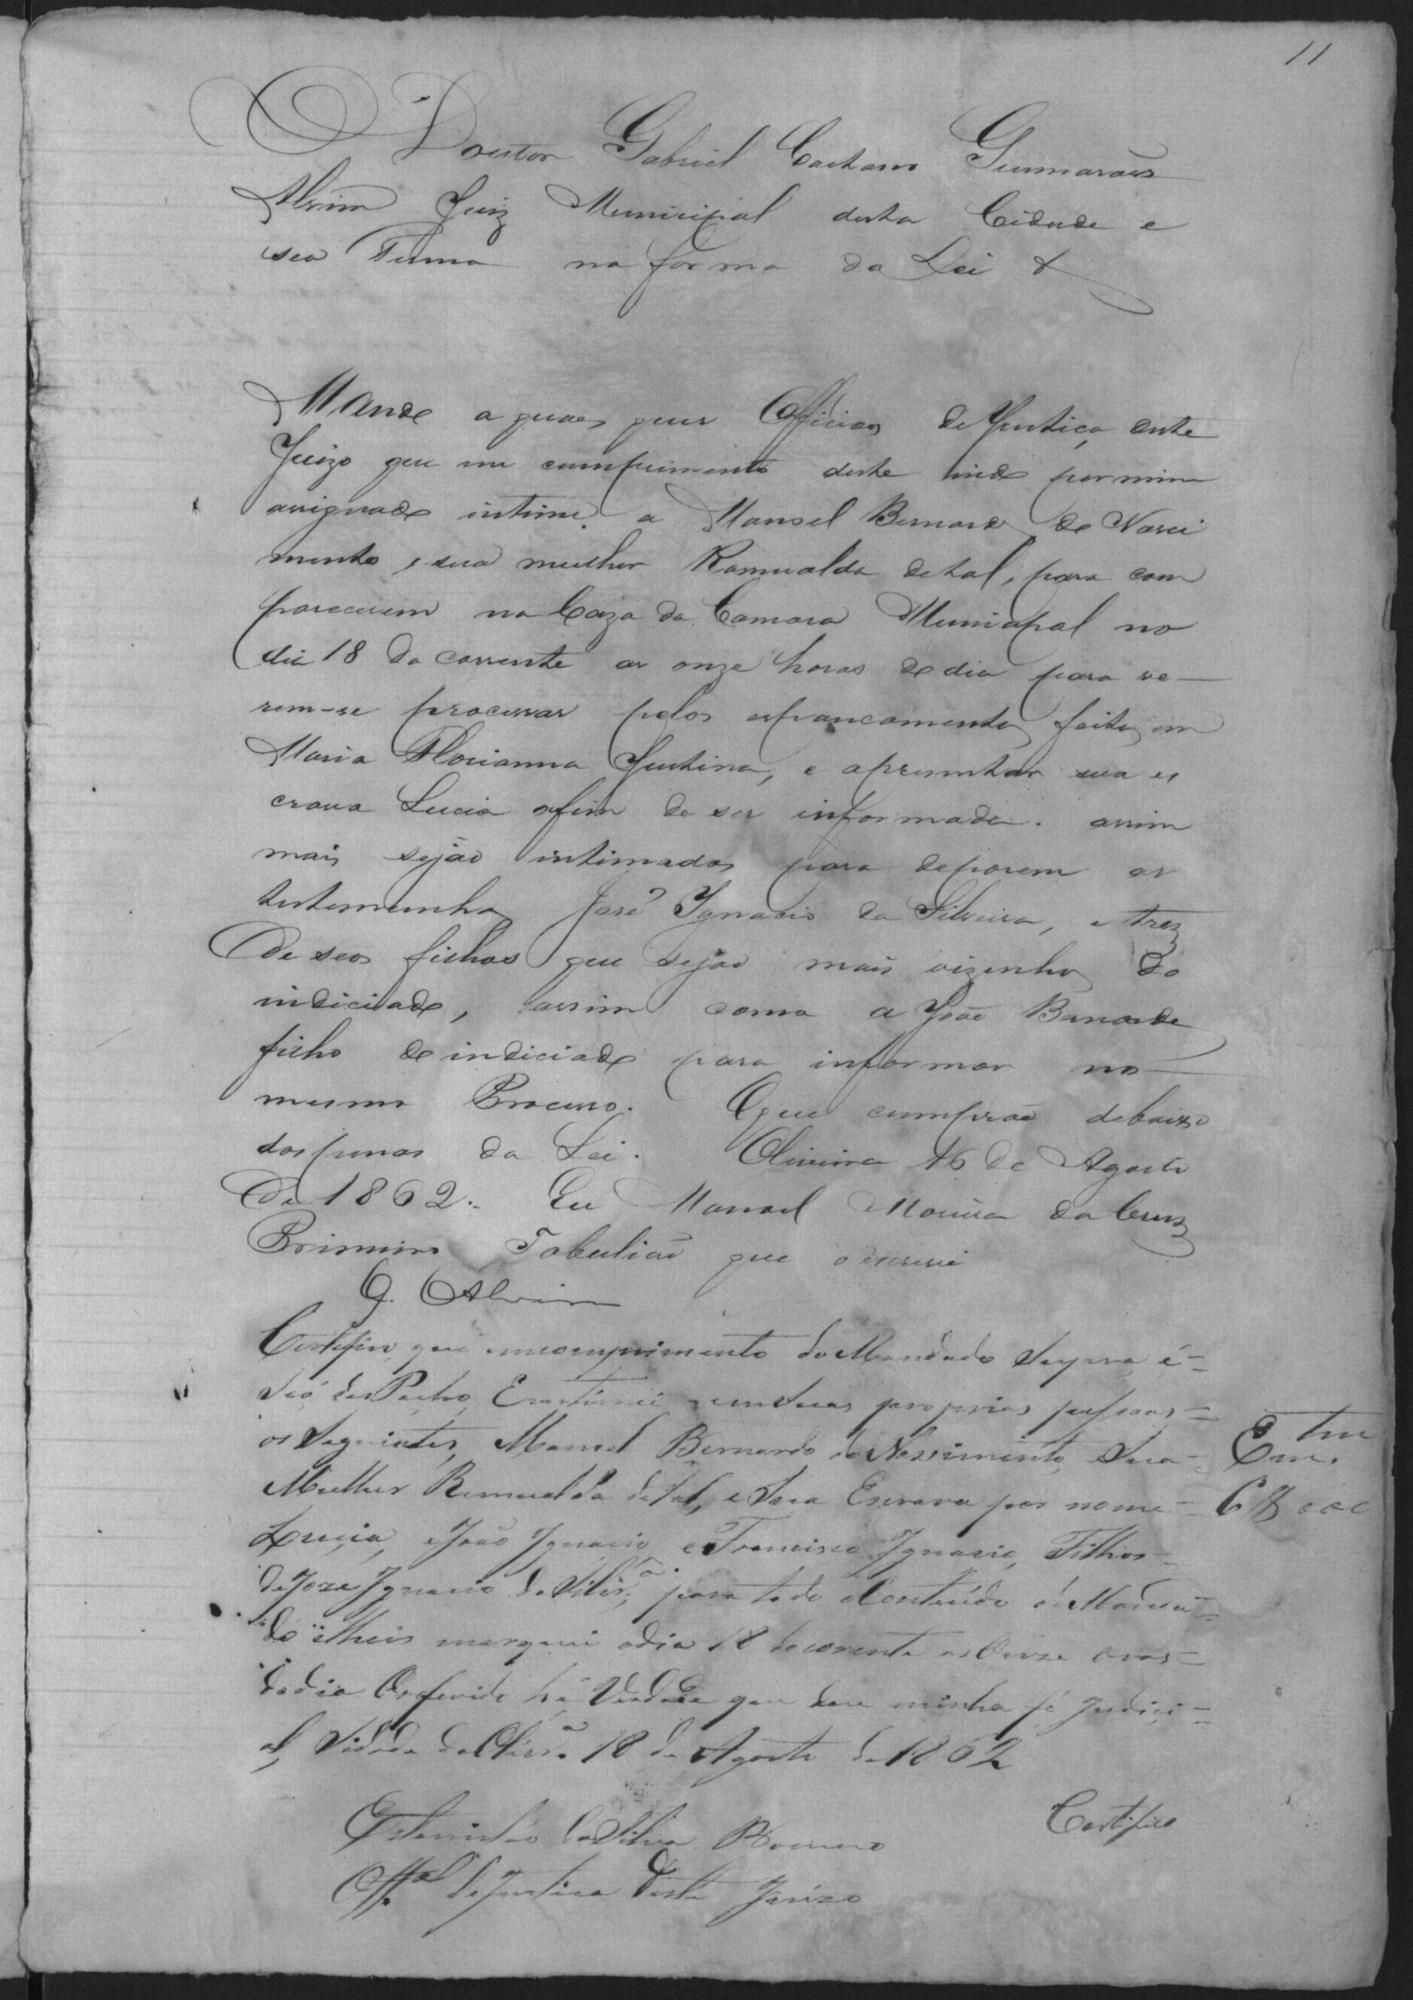 11
O Doutor Gabriel Caetano Guimarães
Alvim Juiz Municipal desta Cidade e
seo Termo na forma da Lei &
Mando a quaes quer Officiaes de Justiça deste
Juizo que em cumprimento deste indo por mim
assignado intime a Manoel Bernardo do Nasci
mento, e sua mulher Romualda de tal, para com
parecerem na Caza da Camara Municipal no
dia 18 do corrente as onze horas do dia para ve-
rem-se processar pelos espancamentos feitos em
Maria Florianna Justina, e apresentar sua es
crava Lucia afim de ser informada. assim
mais sejão intimados para deporem as
testemunhas José Ignacio da Silveira, e trez
de seos filhos que sejão mais vizinhos do
indiciado, assim como a João Bernardo
filho do indiciado para informar no
mesmo Processo. O que cumprão debaixo
das penas da Lei. Oliveira 16 de Agosto
de 1862. Eu Manoel da Cruz
Primeiro Tabelião que o escrevi
G. Alvim
Certifico que em comprimento do Mandado Supra e
Seo desPacho, em Suas proprias pessoas
os Seguintes, Manoel Bernardo do Nassimento, e Sua
Mulher Remualda de tal, e Sua Escrava por nome
Lucia, e João Ignacio e Francisco Ignacio, Filhos
de Joze Ignacio da Silvr.ª para todo o Contiúdo do Manda
do e lheis marquei o dia 18 do corente as Onze oras
do dia O referido hé Verdade que dou minha fé Judici
al, Sidade da Olivr.ª 18 de Agosto de 1862
Estanisláo da Silva
Off.al de Justica deste Juizo
Certifico
6$000